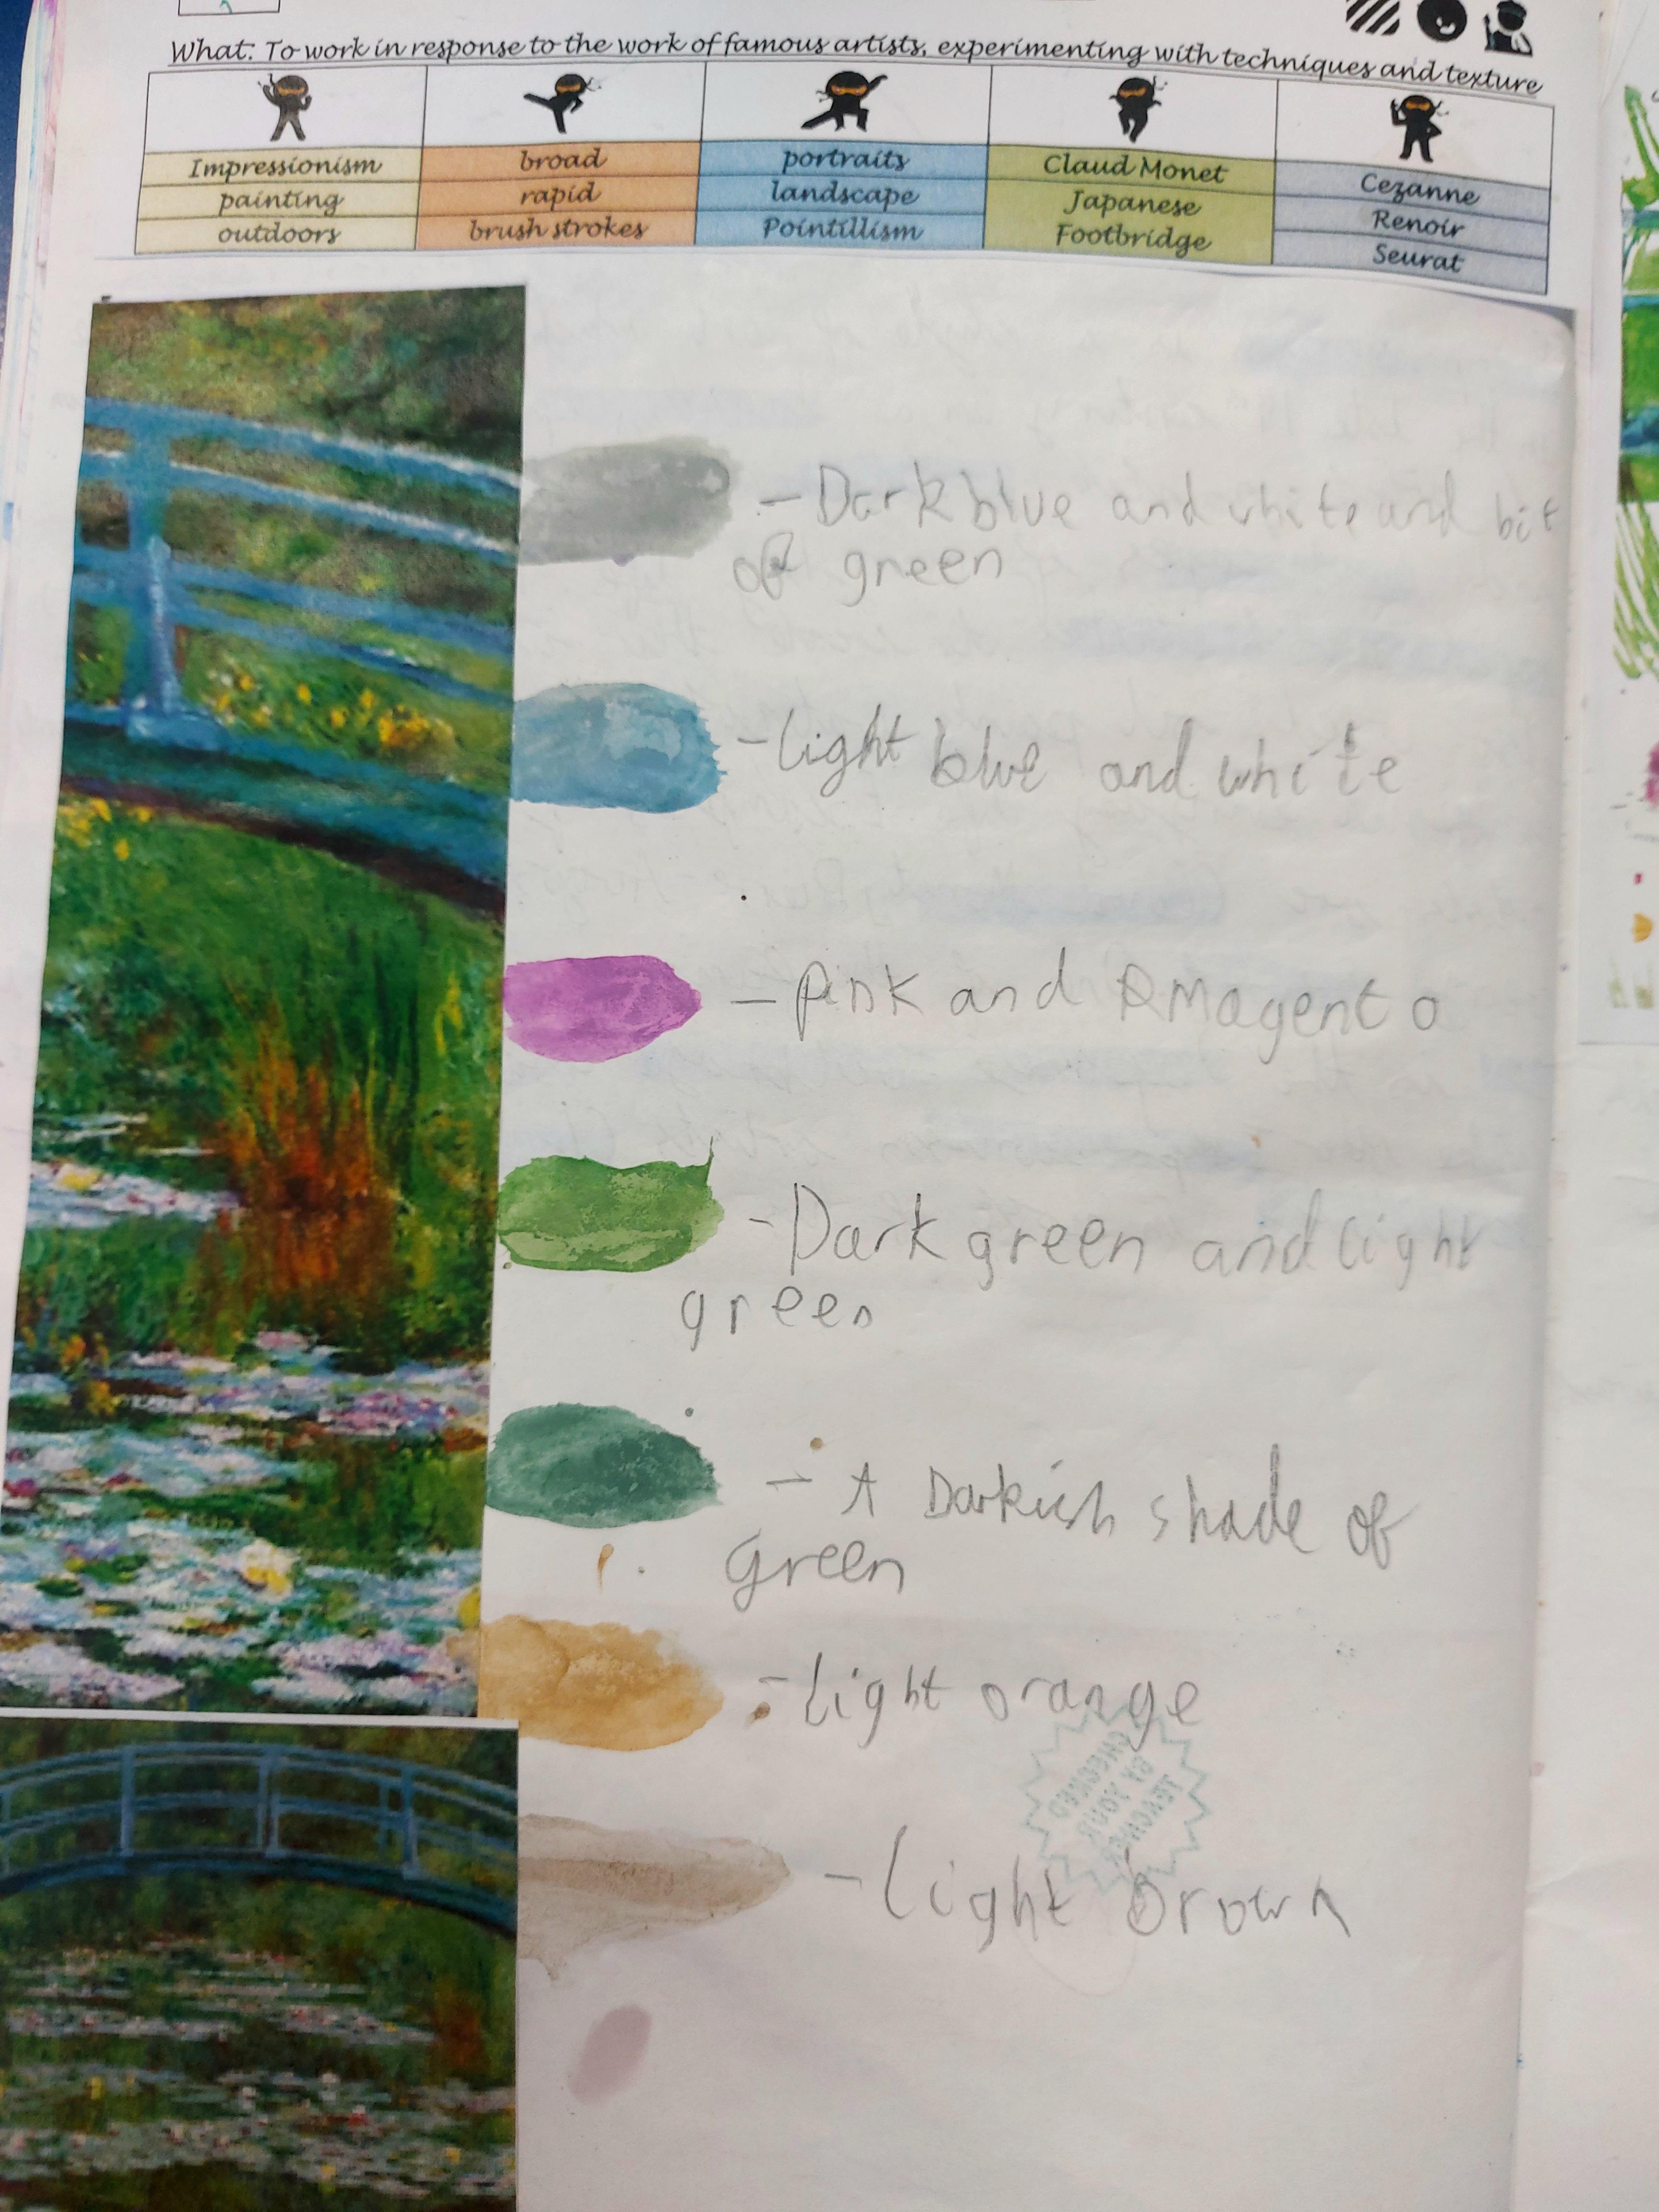 What: To work in response to the work of famous artists, experimenting with techniques and texture
Impressionism broad portraits Claud Monet Cezanne
painting rapid landscape Japanese Renoir
outdoors brush strokes Pointillism Footbridge Seurat
- Dark blue and white and bit
of green
- light blue and white
- Pink and Magenta
- Dark green and light
green
- A Darkish shade of
Green
- light orange
CHECKED
BY YOUR
TEACHER
- light brown